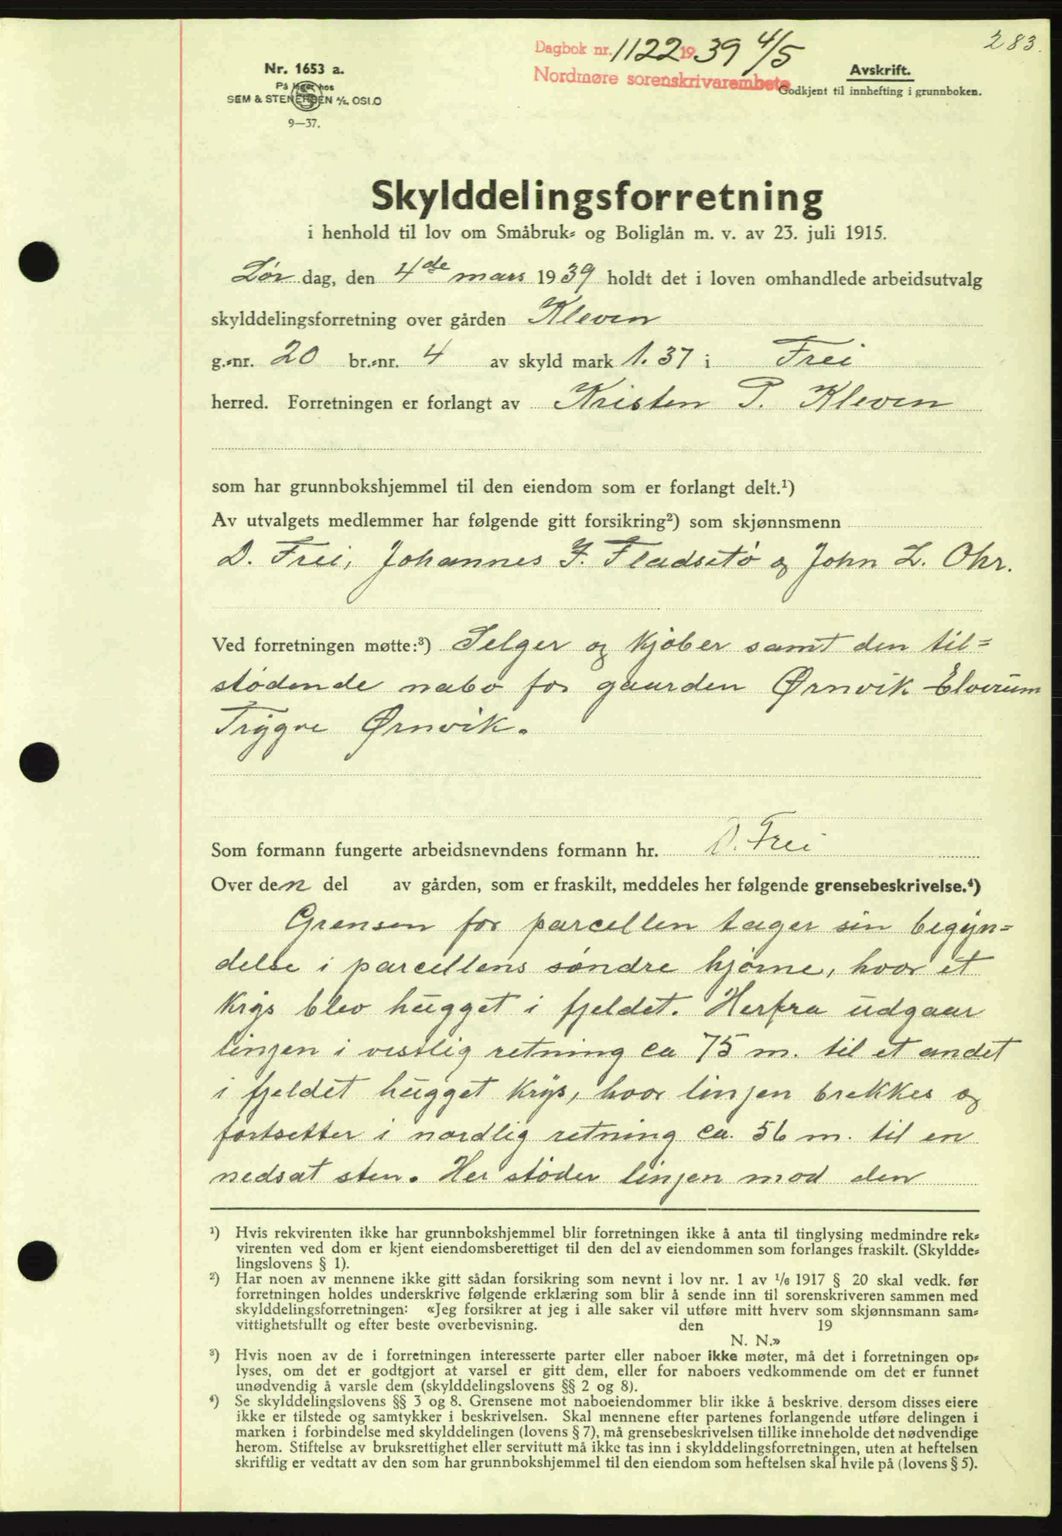 283.
Dagbok nr. 1122 1939 4/5
Nordmøre sorenskrivarembete
Nr. 1653 a.
På lager hos
SEM & STENERSEN A/S, OSLO
9—37.
Avskrift.
Godkjent til innhefting i grunnboken.
Skylddelingsforretning
i henhold til lov om Småbruk- og Boliglån m. v. av 23. juli 1915.
Lør dag, den 4de mars 1939 holdt det i loven omhandlede arbeidsutvalg
skylddelingsforretning over gården Kleven
g.-nr. 20 br.-nr. 4 av skyld mark 1.37 i Frei
herred. Forretningen er forlangt av Kristen P. Kleven
som har grunnbokshjemmel til den eiendom som er forlangt delt.¹)
Av utvalgets medlemmer har følgende gitt forsikring²) som skjønnsmenn
D. Frei, Johannes F. Fladsetø og John L. Ohr.
Ved forretningen møtte:³) Selger og kjøber samt den til-
stødende nabo for gaarden Ørnvik Elverum
Trygve Ørnvik.
Som formann fungerte arbeidsnevndens formann hr. D. Frei
Over den del av gården, som er fraskilt, meddeles her følgende grensebeskrivelse.⁴)
Grensen for parcellen tager sin begyn-
delse i parcellens søndre hjørne, hvor et
krys blev hugget i fjeldet. Herfra udgaar
linjen i vestlig retning ca 75 m. til et andet
i fjeldet hugget kryss, hvor linjen brekkes og
fortsetter i nordlig retning ca. 56 m. til en
nedsat sten. Her støder linjen mod den
¹) Hvis rekvirenten ikke har grunnbokshjemmel blir forretningen ikke å anta til tinglysing medmindre rek-
virenten ved dom er kjent eiendomsberettiget til den del av eiendommen som forlanges fraskilt. (Skyldde-
lingslovens § 1).
²) Har noen av mennene ikke gitt sådan forsikring som nevnt i lov nr. 1 av 1/6 1917 § 20 skal vedk. før
forretningen holdes underskrive følgende erklæring som blir å sende inn til sorenskriveren sammen med
skylddelingsforretningen: «Jeg forsikrer at jeg i alle saker vil utføre mitt hverv som skjønnsmann sam-
vittighetsfullt og efter beste overbevisning. den 19
N. N.»
³) Hvis noen av de i forretningen interesserte parter eller naboer ikke møter, må det i forretningen op-
lyses, om det er godtgjort at varsel er gitt dem, eller for naboers vedkommende om det er funnet
unødvendig å varsle dem (skylddelingslovens §§ 2 og 8).
⁴) Se skylddelingslovens §§ 3 og 8. Grensene mot naboeiendommer blir ikke å beskrive, dersom disses eiere
ikke er tilstede og samtykker i beskrivelsen. Skal mennene efter partenes forlangende utføre delingen i
marken i forbindelse med skylddelingen (lovens § 7), må grensebeskrivelsen tillike inneholde det nødvendige
herom. Stiftelse av bruksrettighet eller servitutt må ikke tas inn i skylddelingsforretningen, uten at heftelsen
skriftlig er vedtatt av den som har grunnbokshjemmel til den eiendom som heftelsen skal hvile på (lovens § 5).